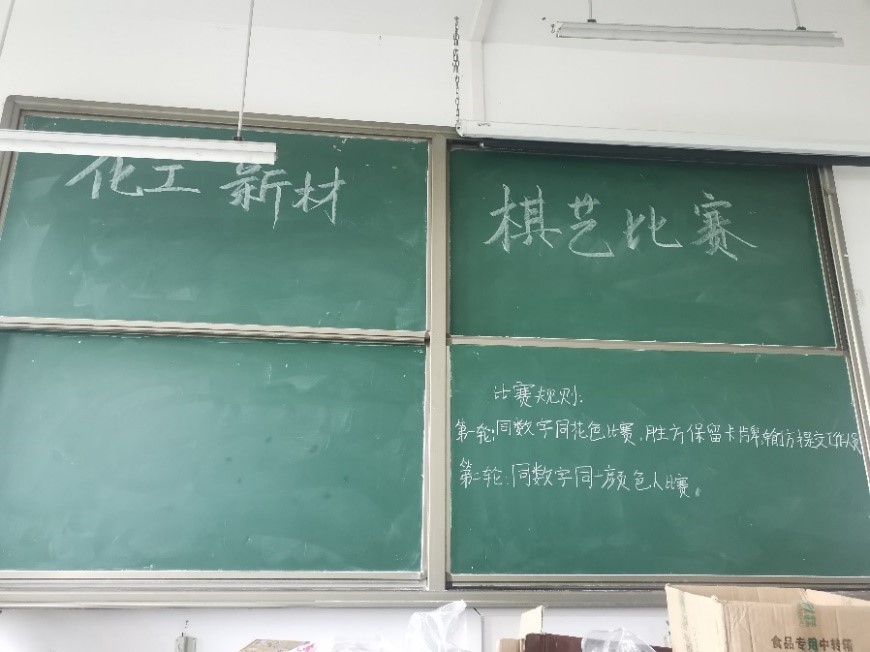 化工 新材
棋艺比赛
比赛规则:
第一轮:同数字同花色比赛,胜方保留卡牌,输方提交工作人员
第二轮:同数字同一颜色人比赛。
食品专用中转箱